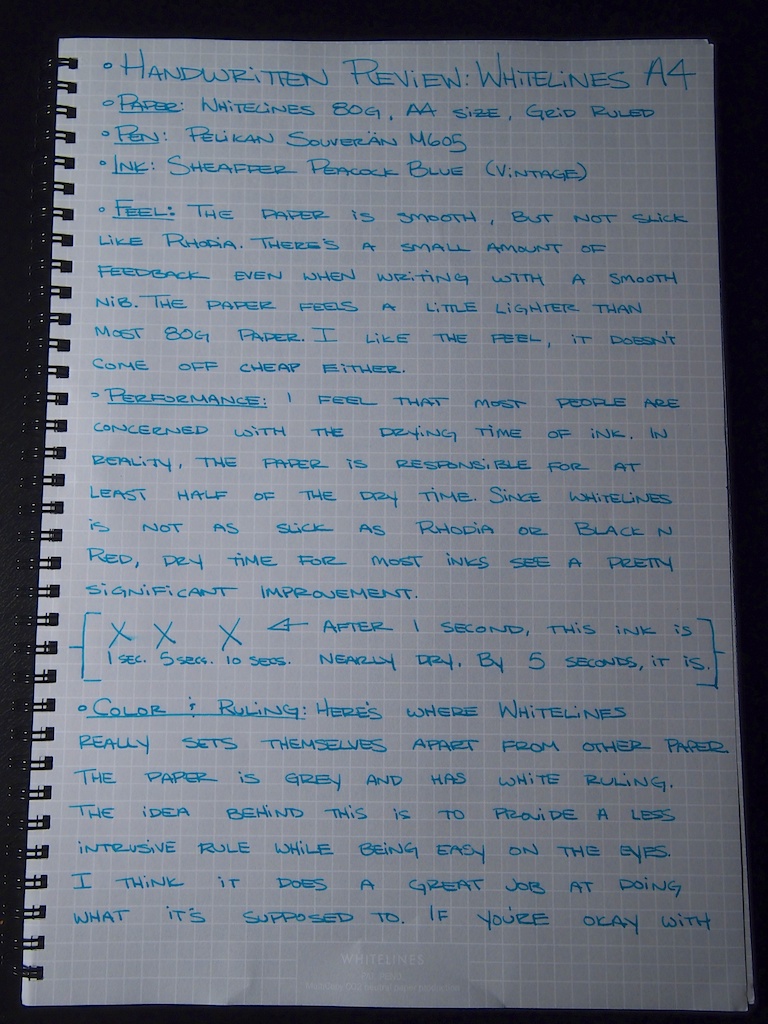 • HANDWRITTEN REVIEW: WHITELINES A4
• PAPER: WHITELINES 80G, A4 SIZE, GRID RULED
• PEN: PELIKAN SOUVERÄN M605
• INK: SHEAFFER PEACOCK BLUE (VINTAGE)
• FEEL: THE PAPER IS SMOOTH, BUT NOT SLICK
LIKE RHODIA. THERE'S A SMALL AMOUNT OF
FEEDBACK EVEN WHEN WRITING WITH A SMOOTH
NIB. THE PAPER FEELS A LITTLE LIGHTER THAN
MOST 80G PAPER. I LIKE THE FEEL, IT DOESN'T
COME OFF CHEAP EITHER.
• PERFORMANCE: I FEEL THAT MOST PEOPLE ARE
CONCERNED WITH THE DRYING TIME OF INK. IN
REALITY, THE PAPER IS RESPONSIBLE FOR AT
LEAST HALF OF THE DRY TIME. SINCE WHITELINES
IS NOT AS SLICK AS RHODIA OR BLACK N
RED, DRY TIME FOR MOST INKS SEE A PRETTY
SIGNIFICANT IMPROVEMENT.
[ X X X ← AFTER 1 SECOND, THIS INK IS
1 SEC. 5 SECS. 10 SECS. NEARLY DRY. BY 5 SECONDS, IT IS. ]
• COLOR & RULING: HERE'S WHERE WHITELINES
REALLY SETS THEMSELVES APART FROM OTHER PAPER
THE PAPER IS GREY AND HAS WHITE RULING.
THE IDEA BEHIND THIS IS TO PROVIDE A LESS
INTRUSIVE RULE WHILE BEING EASY ON THE EYES.
I THINK IT DOES A GREAT JOB AT DOING
WHAT IT'S SUPPOSED TO. IF YOU'RE OKAY WITH
WHITELINES